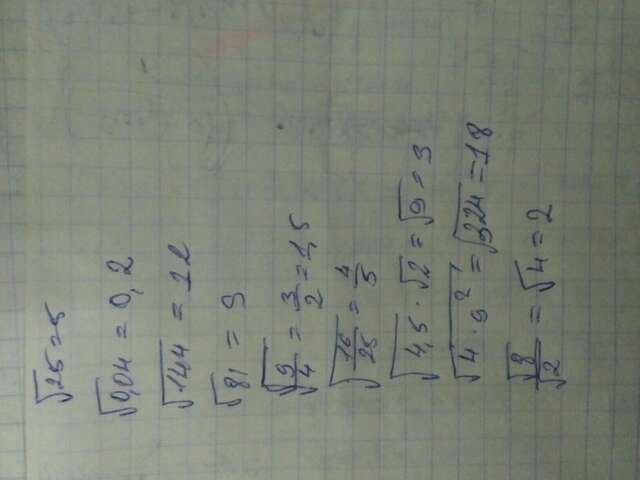 √25=5
√0,04 = 0,2
√144 = 12
√81 = 9
√9/√4 = 3/2 = 1,5
√16/25 = 4/5
√4,5 · √2 = √9 = 3
√4 · 9² = √324 = 18
√8/√2 = √4 = 2